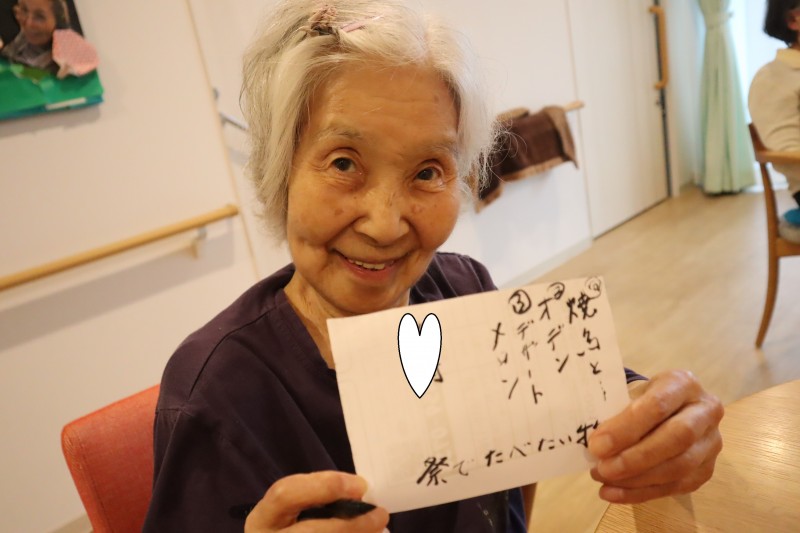 ①焼鳥と
②オデン
③デザート
メロン
祭でたべたい物